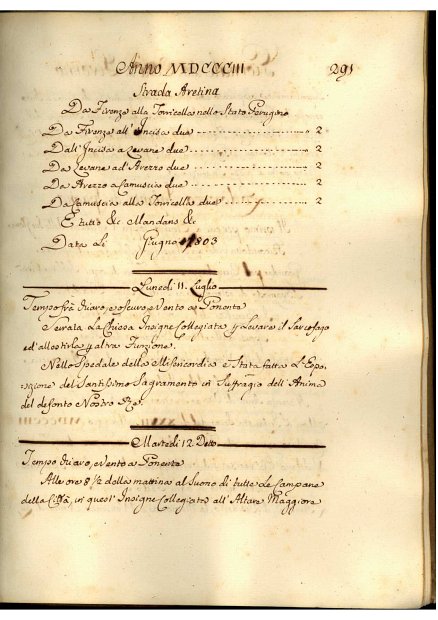 Anno MDCCCIII 291
Strada Aretina
Da Firenze alla Torricella nello Stato Perugino
Da Firenze all'Incisa due 2
Dall'Incisa a Levane due 2
Da Levane ad'Arezzo due 2
Da Arezzo a Camuscia due 2
Da Camuscia alla Torricella due 2
E tutto &c Mandans &c
Data Li Giugno 1803
Lunedi 11. Luglio
Tempo frà chiaro, e oscuro, e vento a Ponente
Serrata La Chiesa Insigne Collegiata p Levare il Sarcofago
ed'allestirla p altra Funzione.
Nello Spedale della Misericordia è Stata fatta L'Espo-
sizione del Santissimo Sagramento in Suffragio dell'Anima
del defonto Nostro Rè.
Martedi 12. Detto
Tempo chiaro, e vento a Ponente
Alle ore 8 1/2 della mattina al Suono di tutte Le Campane
della Città, in quest'Insigne Collegiata all'Altare Maggiore